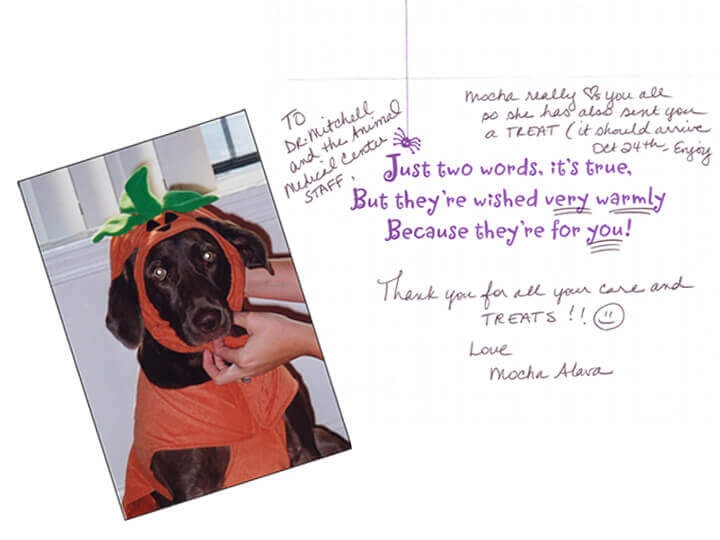 TO
DR. Mitchell
and the Animal
Medical Center
STAFF,
Mocha really ♡s you all
so she has also sent you
a TREAT (it should arrive
Oct 24th - Enjoy
Just two words, it's true,
But they're wished very warmly
Because they're for you!
Thank you for all your care and
TREATS!! ☺
Love
Mocha Alava